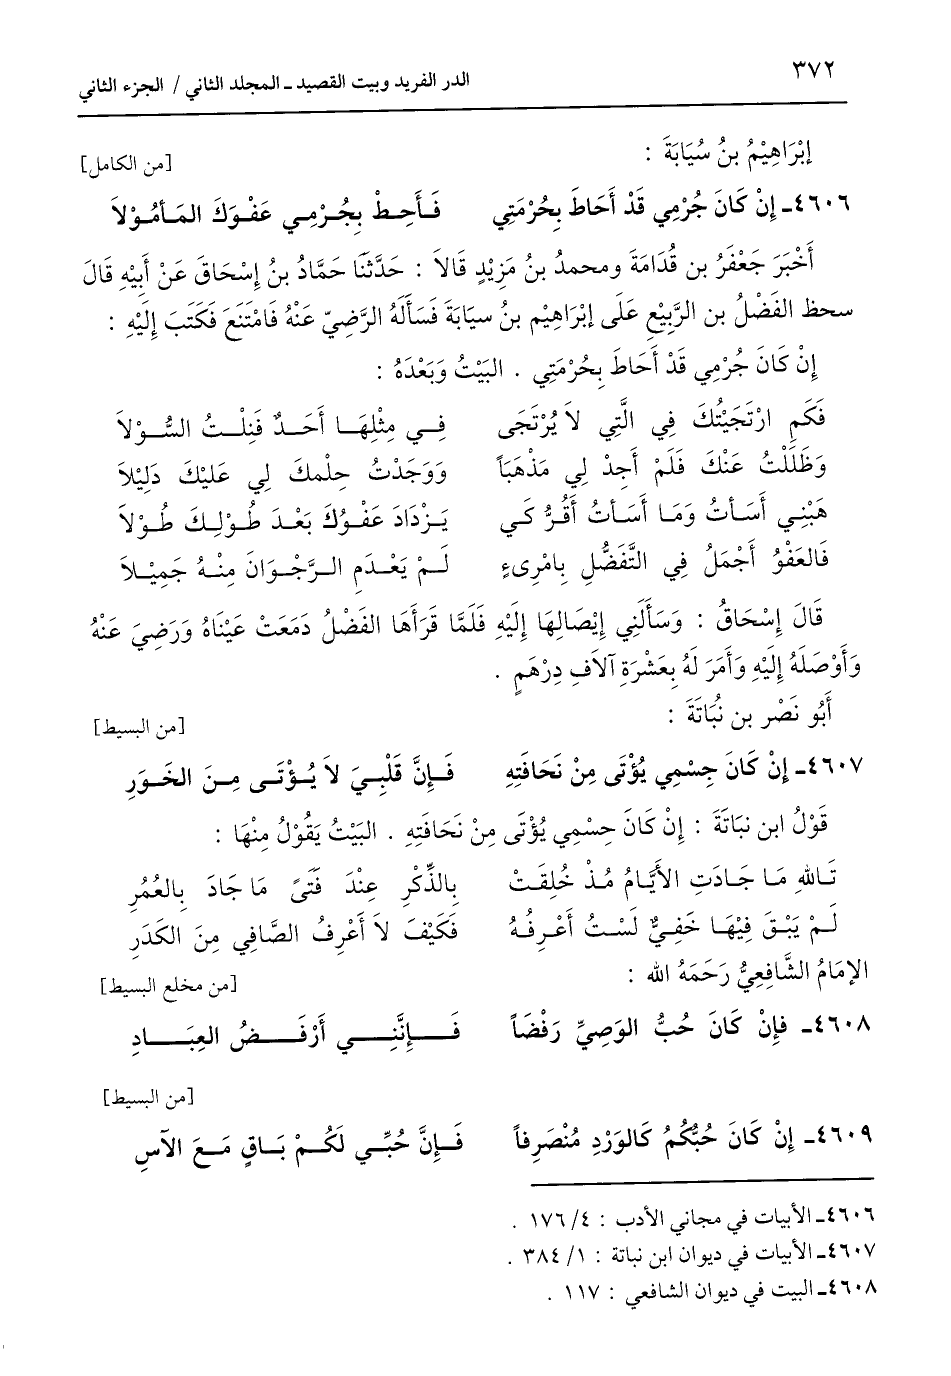 ٣٧٢
الدر الفريد وبيت القصيد ـ المجلد الثاني / الجزء الثاني
إبْرَاهِيْمُ بنُ سُيَابَةَ :
[من الكامل]
٤٦٠٦ـ إنْ كَانَ جُرْمِي قَدْ أحَاطَ بِحُرْمَتِي فَأَحِطْ بِجُرْمِي عَفْوَكَ المَأمُوْلاَ
أخْبَرَ جَعْفَرُ بن قُدَامَةَ ومحمدُ بنُ مَزْيِدٍ قَالاَ : حَدَّثَنَا حَمَّادُ بنُ إسْحَاقَ عَنْ أبِيْهِ قَالَ
سحظ الفَضْلُ بن الرَّبِيْعِ عَلَى إبْرَاهِيْم بنُ سيَابَةَ فَسَألَهُ الرَّضِيّ عَنْهُ فَامْتَنَعَ فَكَتَبَ إلَيْهِ :
إنْ كَانَ جُرْمِي قَدْ أحَاطَ بِحُرْمَتِي . البَيْتُ وَبَعْدَهُ :
فَكَمِ ارْتَجَيْتُكَ فِي الَّتِي لاَ يُرْتَجَى فِي مِثْلِهَا أحَدٌ فَنِلْتُ السُّوْلاَ
وَظَلَلْتُ عَنْكَ فَلَمْ أجِدْ لِي مَذْهَبَاً وَوَجَدْتُ حِلْمكَ لِي عَلَيْكَ دَلِيْلاَ
هَبْنِي أسَأتُ وَمَا أسَأتُ أقُرُّ كَي يَزْدَادَ عَفْوُكَ بَعْدَ طُوْلِكَ طُوْلاَ
فَالعَفْوُ أجْمَلُ فِي التَّفَضُّلِ بِامْرِىءٍ لَمْ يَعْدَمِ الرَّجْوَانَ مِنْهُ جَمِيْلاَ
قَالَ إسْحَاقُ : وَسَألَنِي إيْصَالِهَا إلَيْهِ فَلَمَّا قَرَأهَا الفَضْلُ دَمَعَتْ عَيْنَاهُ وَرَضِيَ عَنْهُ
وَأوْصَلَهُ إلَيْهِ وَأمَرَ لَهُ بِعَشْرَةِ آلاَفِ دِرْهَمٍ .
أبُو نَصْر بن نُبَاتَةَ :
[من البسيط]
٤٦٠٧ـ إنْ كَانَ جِسْمِي يُؤْتَى مِنْ نَحَافَتِهِ فَإنَّ قَلْبِيَ لاَ يُؤْتَى مِنَ الخَوَرِ
قَوْلُ ابن نبَاتَةَ : إنْ كَانَ جِسْمِي يُؤْتَى مِنْ نَحَافَتِهِ . البَيْتُ يَقُوْلُ مِنْهَا :
تَاللهِ مَا جَادَتِ الأيَّامُ مُذْ خُلِقَتْ بِالذِّكْرِ عِنْدَ فَتَىً مَا جَادَ بِالعُمُرِ
لَمْ يَبْقَ فِيْهَا خَفِيٌّ لَسْتُ أعْرِفُهُ فَكَيْفَ لاَ أعْرِفُ الصَّافِي مِنَ الكَدَرِ
الإمَامُ الشَّافِعِيُّ رَحَمَهُ الله :
[من مخلع البسيط]
٤٦٠٨ـ فإنْ كَانَ حُبُّ الوَصِيِّ رَفْضَاً فَإنَّنِي أرْفَضُ العِبَادِ
[من البسيط]
٤٦٠٩ـ إنْ كَانَ حُبُّكُمُ كَالوَرْدِ مُنْصَرِفاً فَإنَّ حُبِّي لَكُمْ بَاقٍ مَعَ الآسِ
٤٦٠٦ـ الأبيات في مجاني الأدب : ٤/ ١٧٦ .
٤٦٠٧ـ الأبيات في ديوان ابن نباتة : ١/ ٣٨٤ .
٤٦٠٨ـ البيت في ديوان الشافعي : ١١٧ .